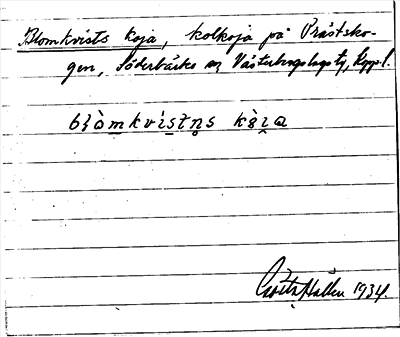 Blomkvists koja, kolkoja på Prästsko-
gen, Söderbärke sn, Västerbergslags tg, Kopp. l.
blòmkvìstn̥s kòi̯a
Gösta Hallén 1934.